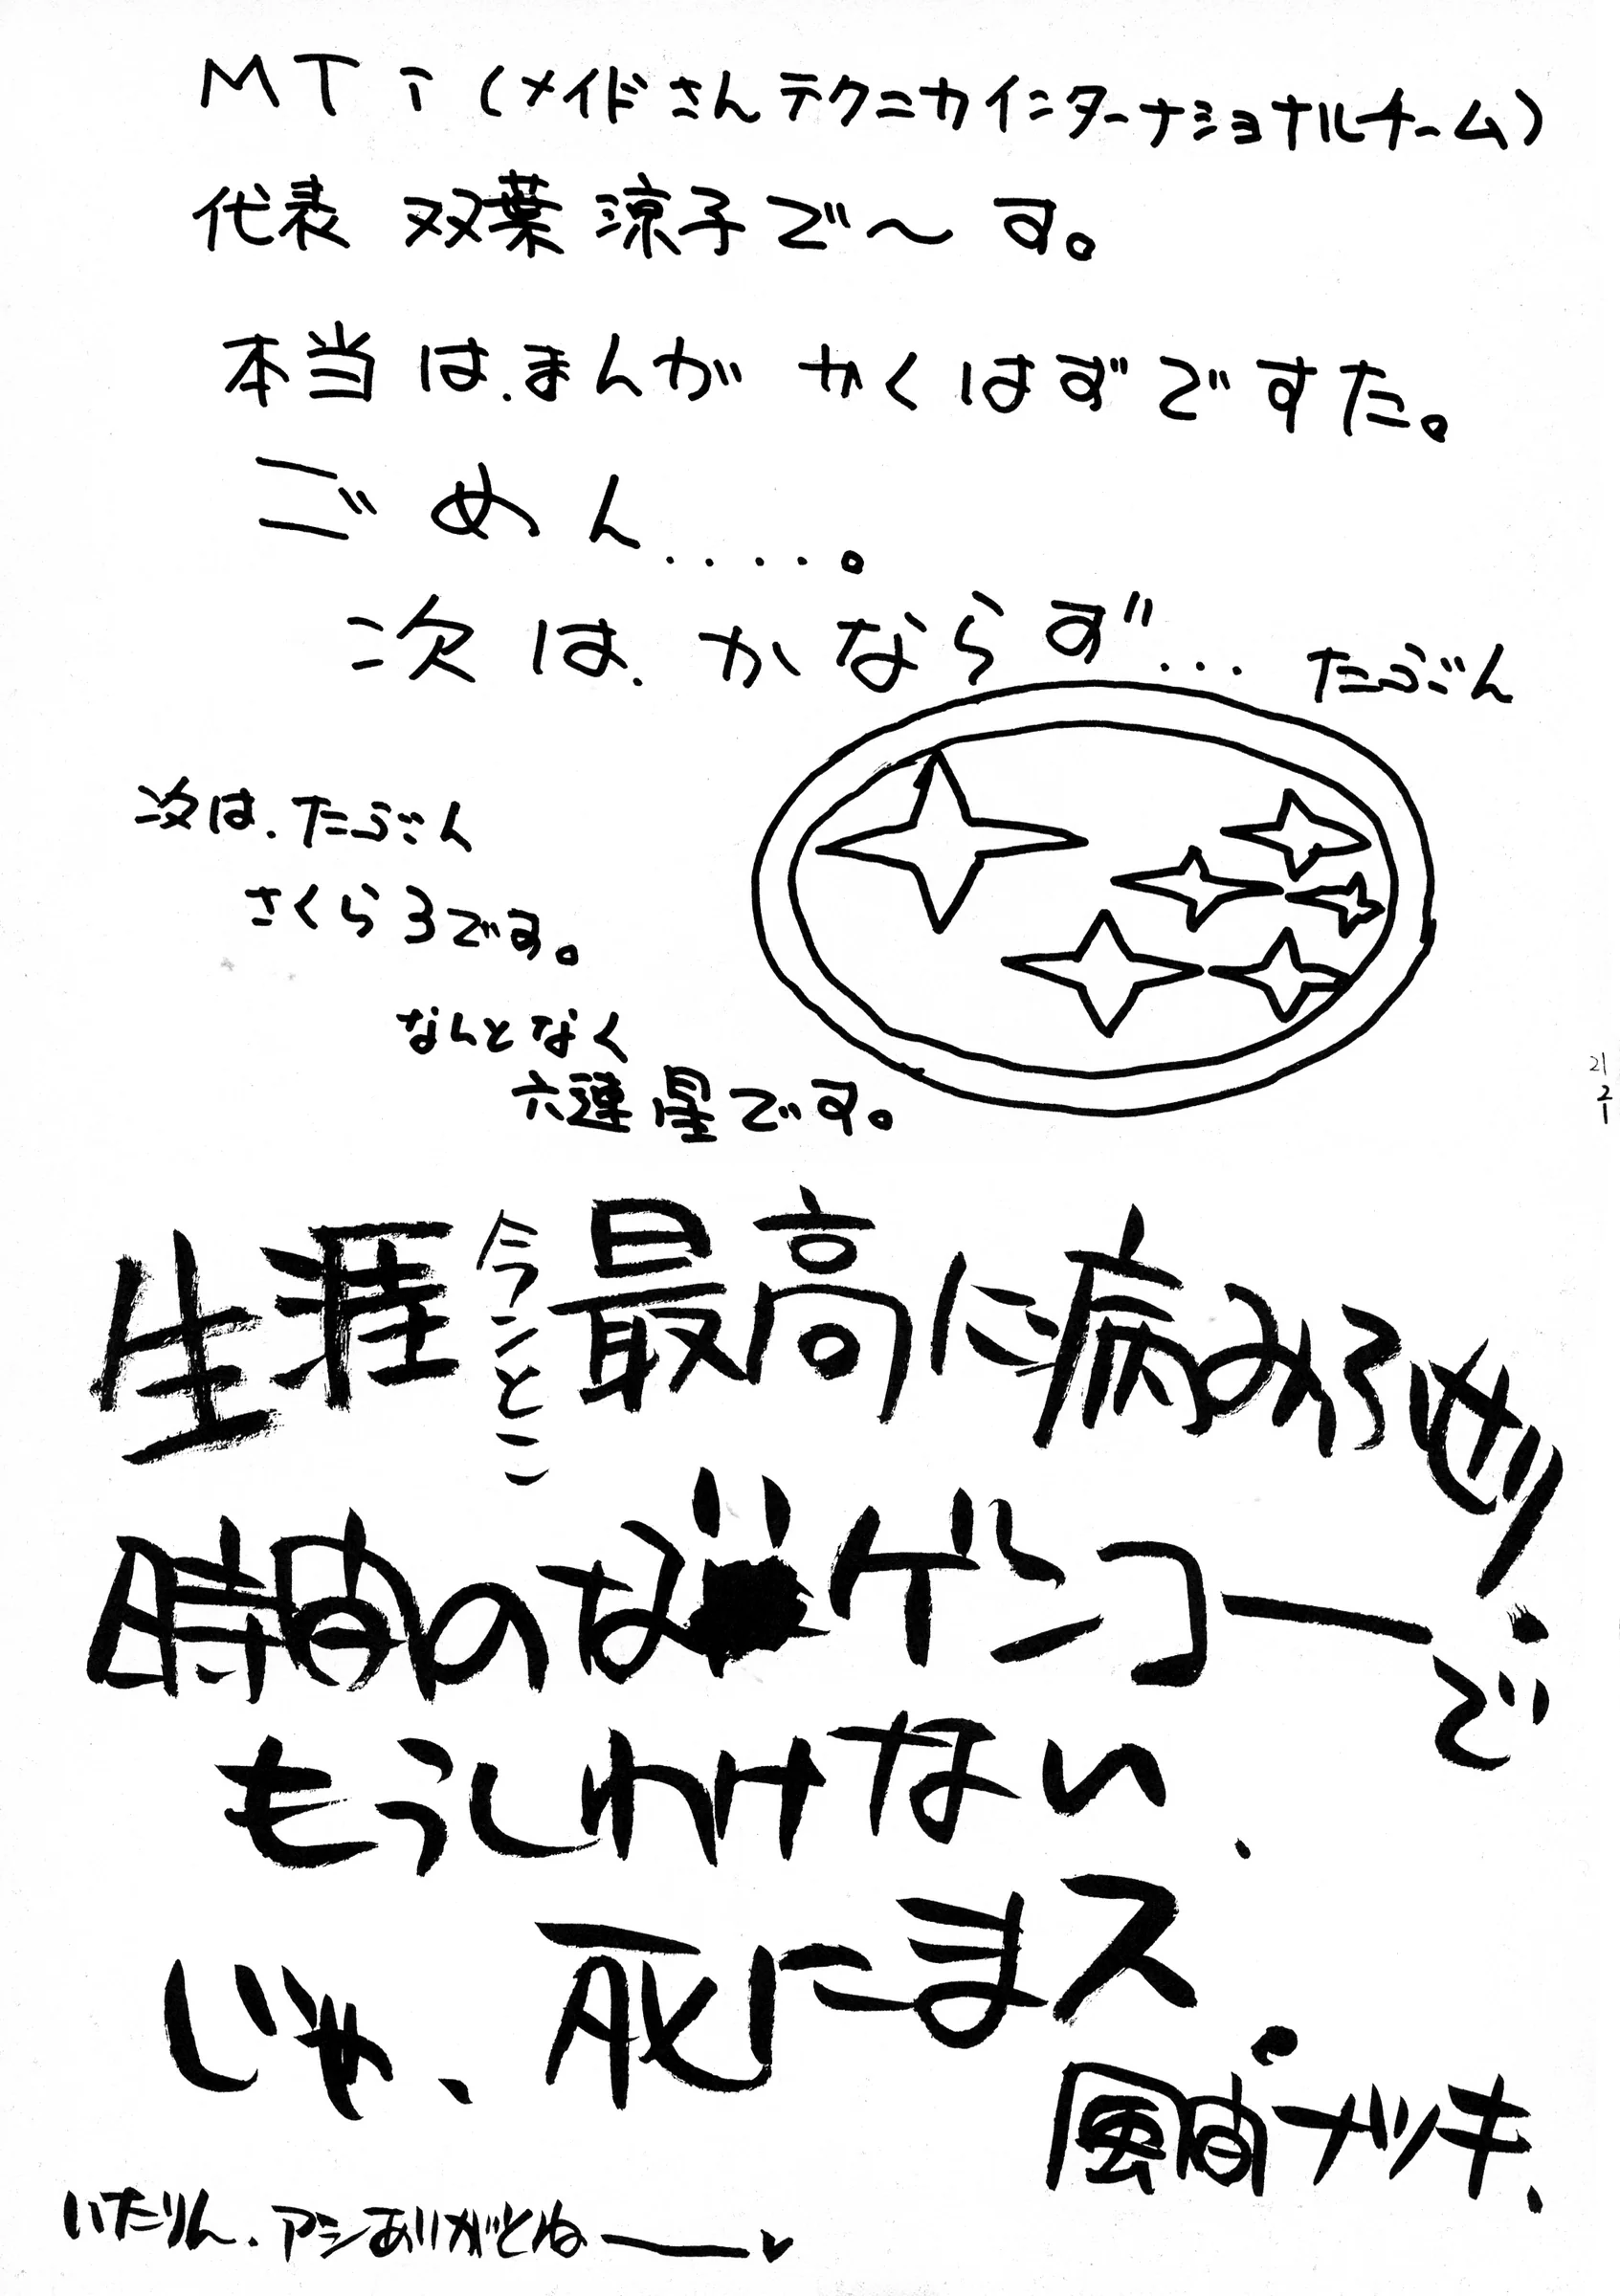 MTi(メイドさんテクニカインターナショナルチーム)
代表 双葉 涼子で〜す。
本当は.まんが かくはずですた。
ごめん.....。
次は.かならず...たぶん
次は.たぶん
さくら3です。
なんとなく
六連星です。
21
21
生涯今んとこ最高に病み
時間のな ゲンコーで
もうしわけない.
じゃ、死にまス.
風間ナツキ、
いたりん.アシありがとねー